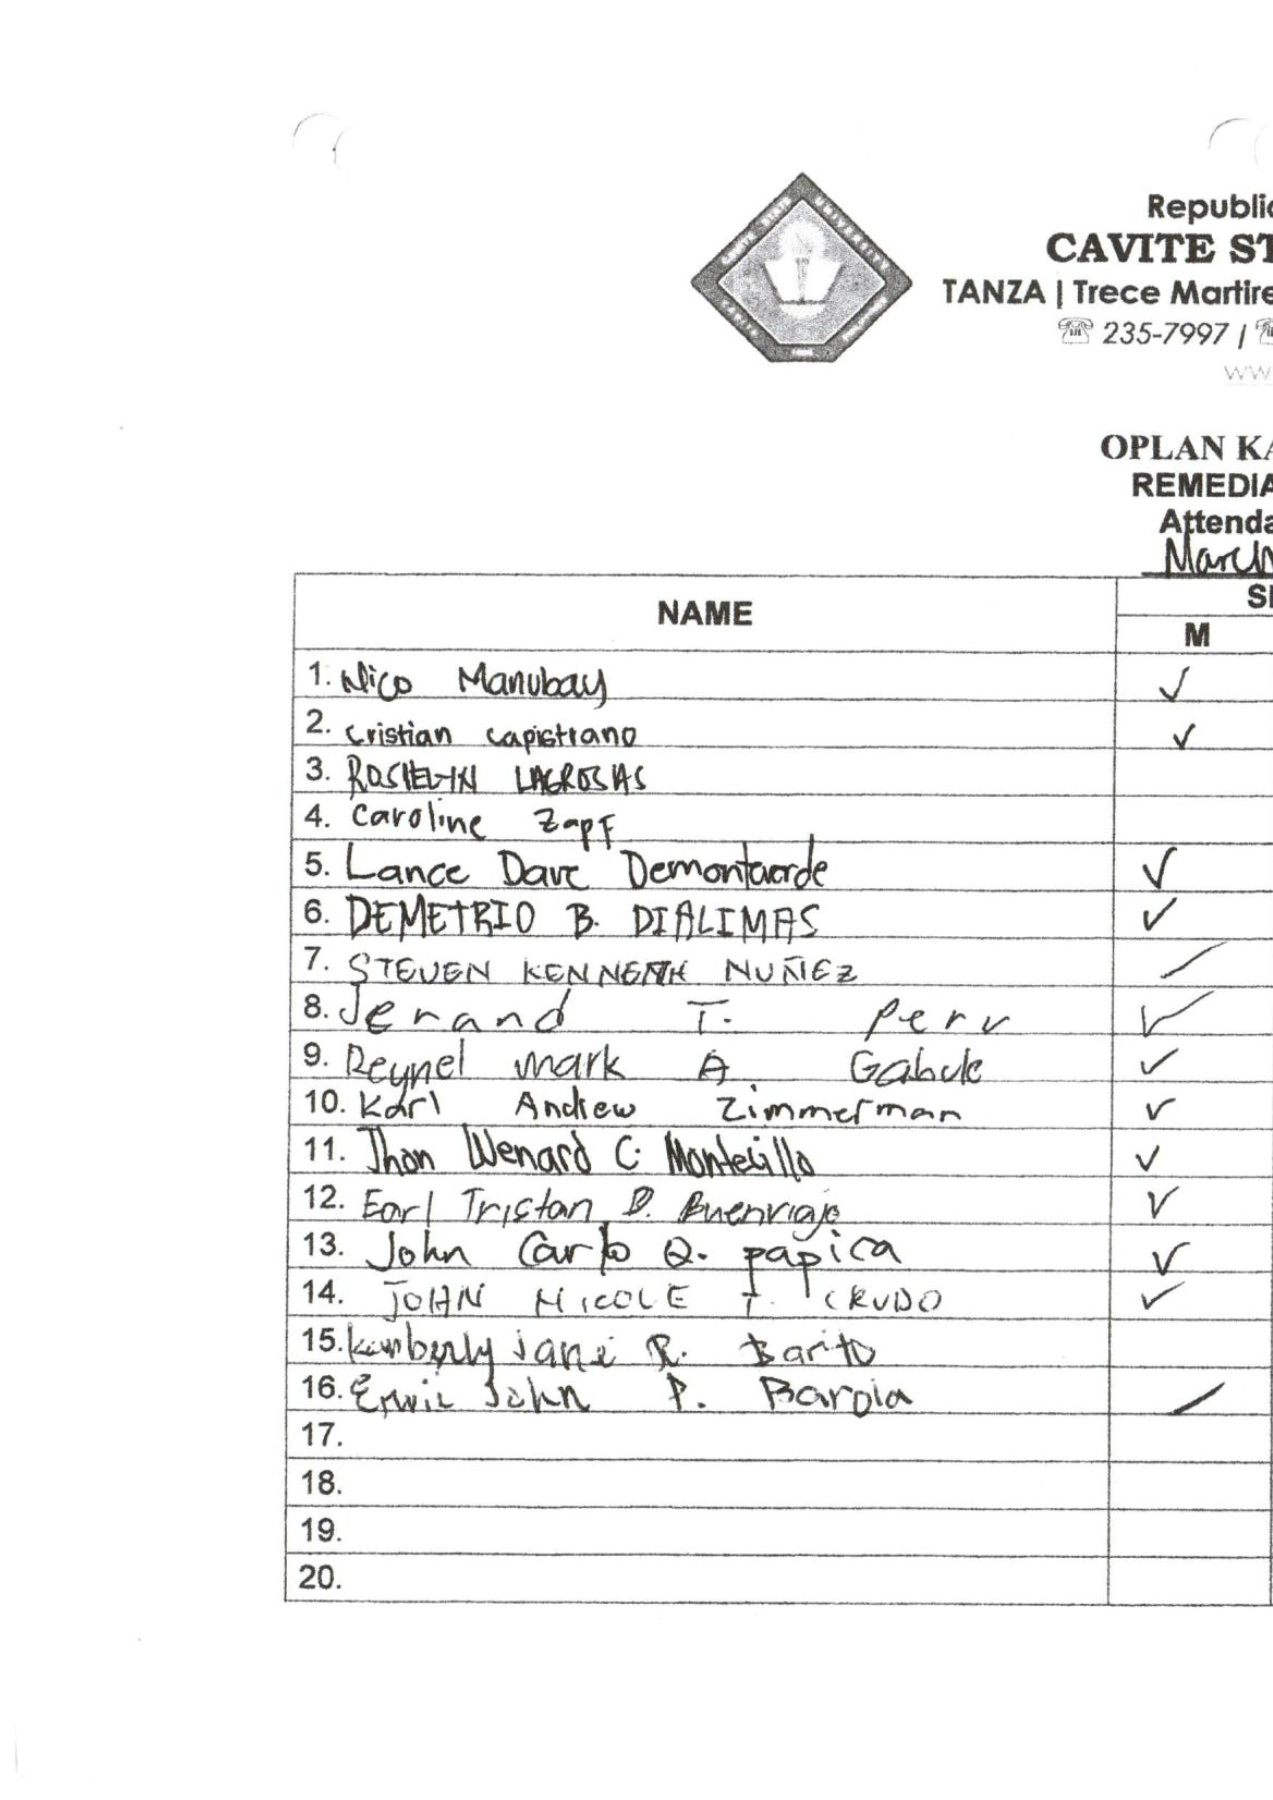 Republic
CAVITE ST
TANZA | Trece Martire
☏ 235-7997 / ☏
WW
OPLAN KA
REMEDIA
Attenda
March
NAME
SE
M
1. Nico Manubay ✓
2. Cristian Capistrano ✓
3. ROSHELYN LAGROSAS
4. Caroline Zapf
5. Lance Dave ✓
6. DEMETRIO B. DIALIMAS ✓
7. STEVEN KENNETH NUÑEZ
8. Jerand T. ✓
9. Reynel mark A ✓
10. Karl Andrew Zimmerman ✓
11. Jhon Wenard C. Montecillo ✓
12. Earl Tristan D. Buenviaje ✓
13. John Carlo Q. papica ✓
14. JOHN NICOLE T. CRUDO ✓
15. Kimberly Jane R. Barito
16. John P.
17.
18.
19.
20.